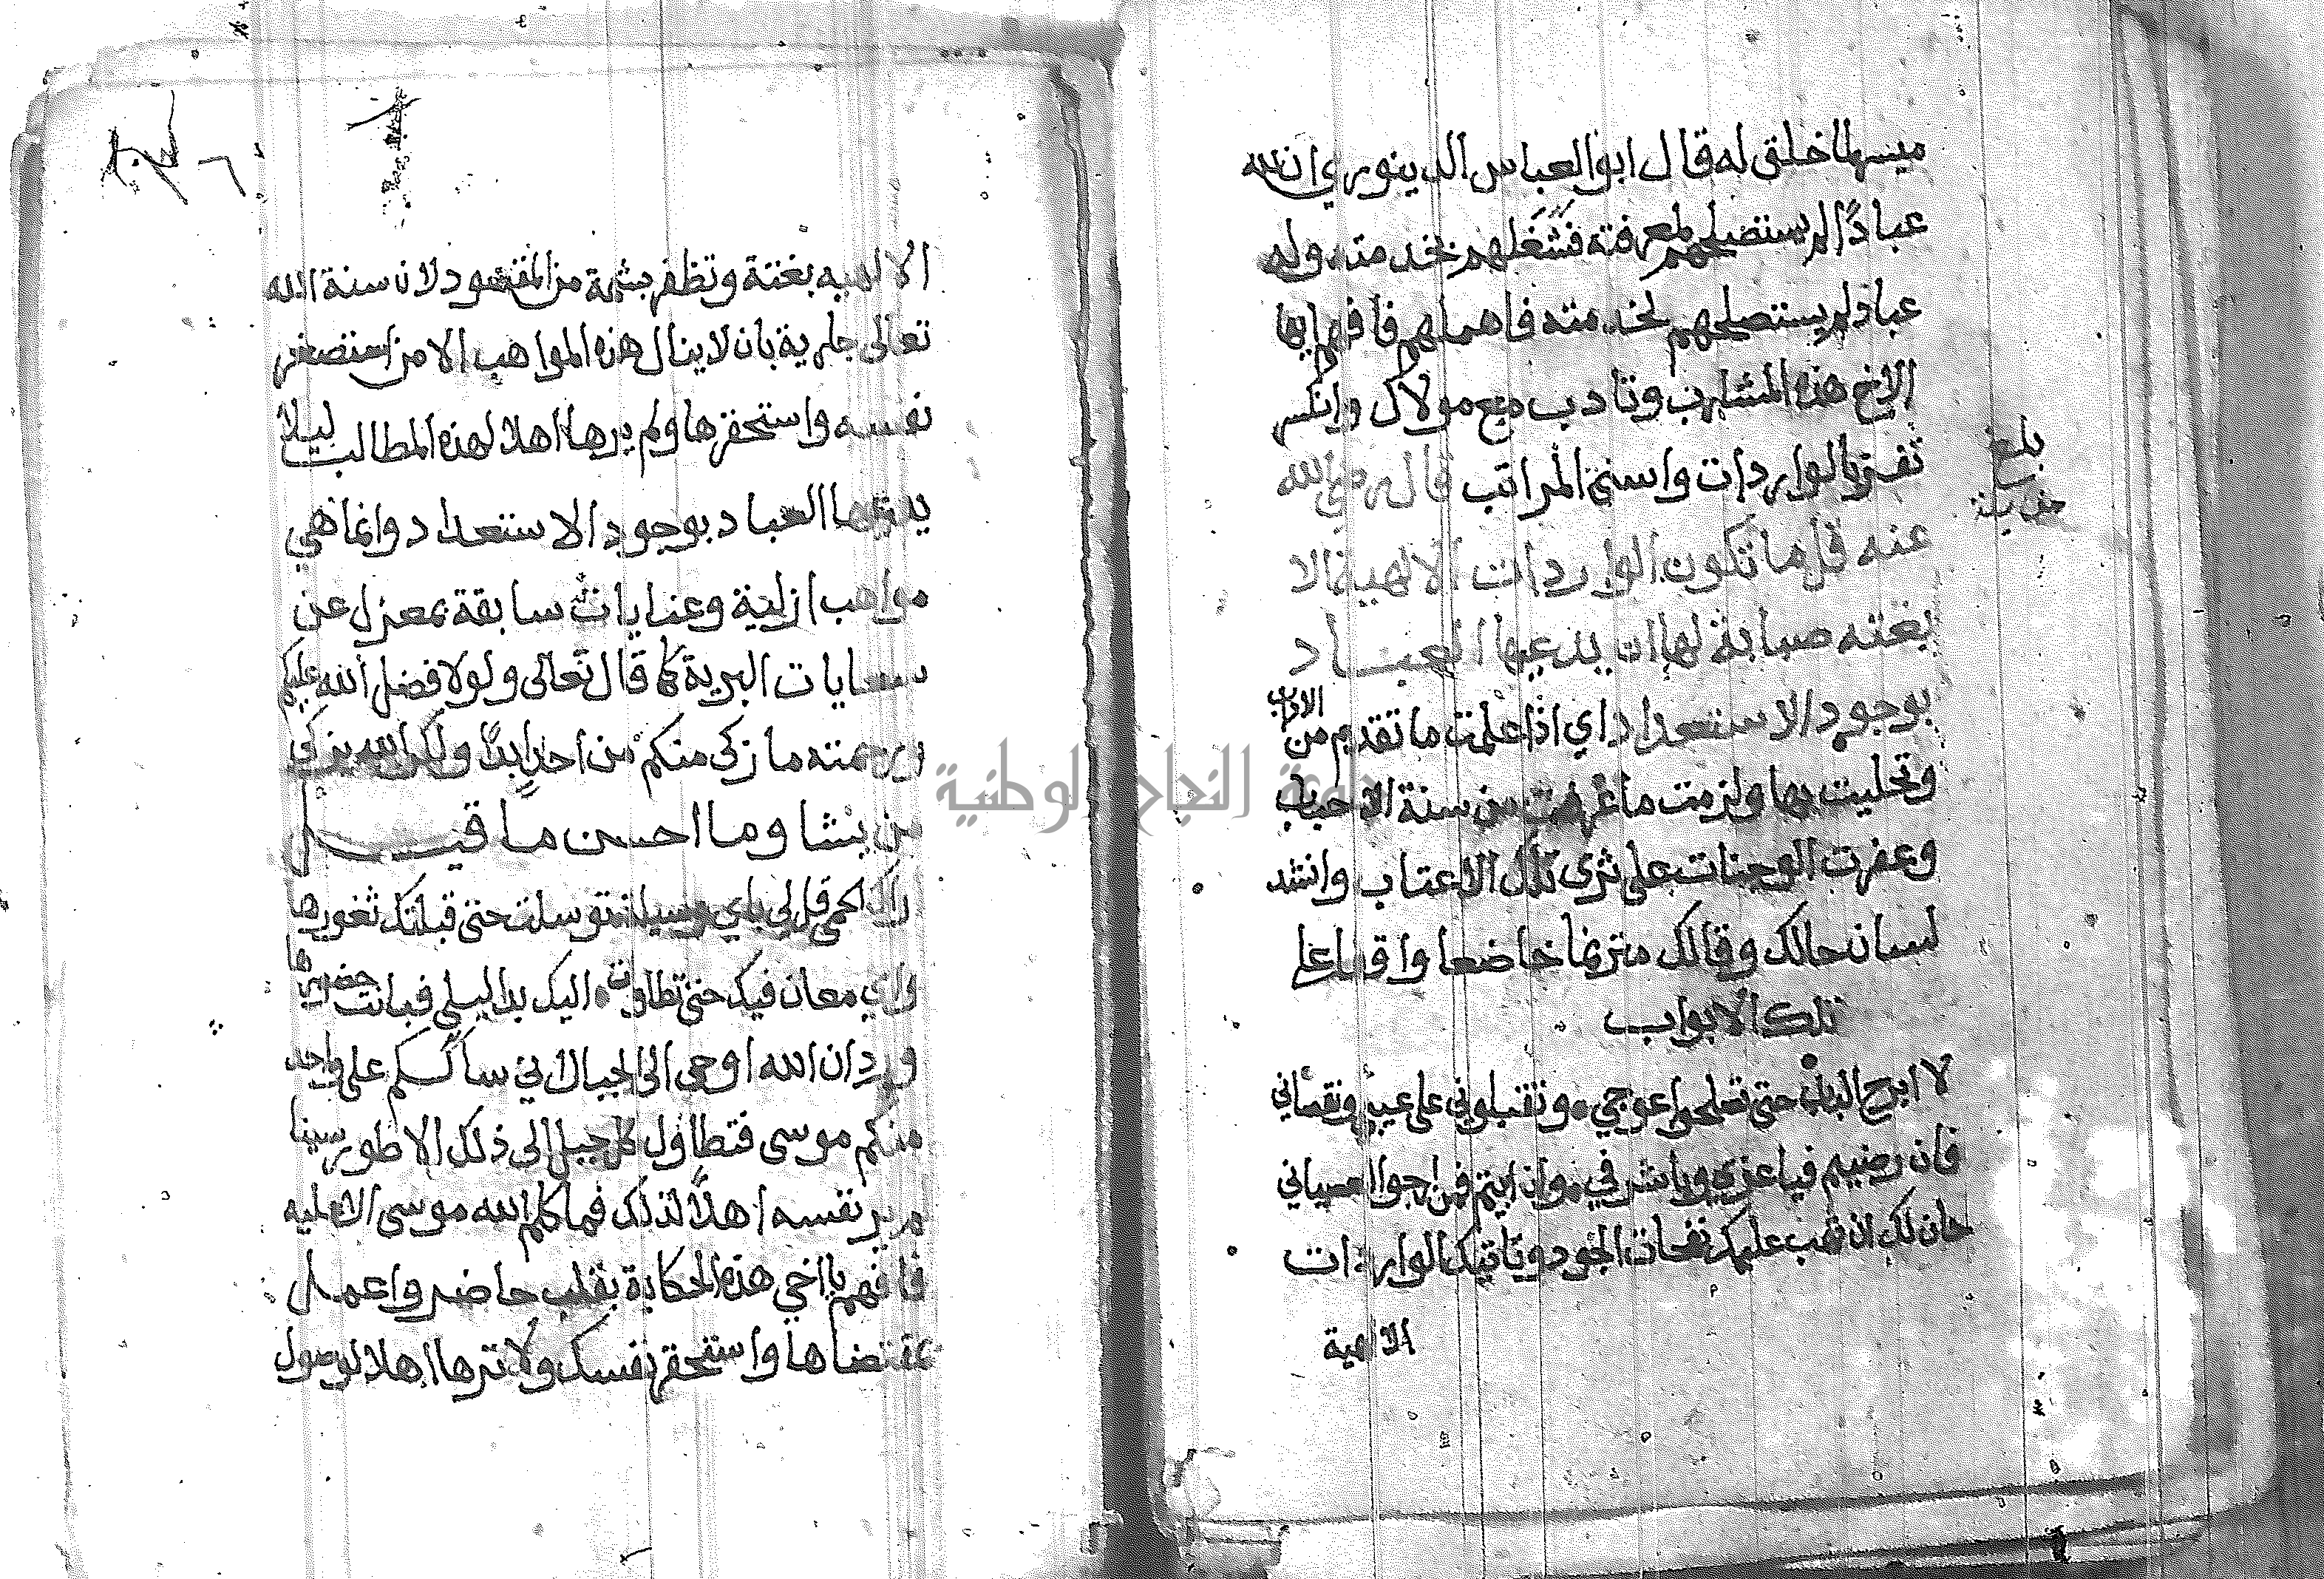 ميسر لما خلق له قال ابو العباس الدينوري ان لله
عبادًا لم يستصلحهم لمعرفته فشغلهم بخدمته وله
عباد لم يستصلحهم لخدمته فاهملهم فافهم ايها
الاخ هذه المشارب وتادب مع مولاك وانكسر
تفز بالواردات واسنى المراتب قال رضي الله
عنه قل ما تكون الواردات الالهية الا
بغتة صيانة لها ان يدعيها العبـاد
بوجود الاستعداد اي اذا علمت ما تقدم من الاداب
وتحليت بها ولزمت ما عرفت من سنة الاحباب
وعفرت الوجنات على ثرى تلك الاعتاب وانشد
لسان حالك وقالك مترنما خاضعا واقفا على
تلك الابواب
لا ابرح الباب حتى تصلحوا عوجي وتقبلوني على عيبي ونقصاني
فان رضيتم فيا عزي ويا شرفي وان ابيتم فمن ارجوا لعصياني
حان لك ان تهب عليك نفحات الجود وتاتيك الواردات
الالهية
بلغ
الالهيه بغتة وتظفر بشمة من المقصود لان سنة الله
تعالى جارية بان لا ينال هذه المواهب الا من استصغر
نفسه واستحقرها ولم يرها اهلا لهذه المطالب ليلا
يدعيها العباد بوجود الاستعداد وانما هي
مواهب ازلية وعنايات سابقة بمعزل عن
سعايات البرية كما قال تعالى ولولا فضل الله عليكم
ورحمته ما زكى منكم من احد ابدًا ولكن الله يزكي
من يشا وما احسن ما قيـل
اراك الحمى قل لي باي وسيلة توسلت حتى قبلتك ثغورها
واي معان فيك حتى تطاولت اليك بدا ليلي فبانت
وورد ان الله اوحى الى الجبال اني ساكلم على واحد
منكم موسى فتطاول كل جبل الى ذلك الا طور سينا
لم ير نفسه اهلًا لذلك فما كلم الله موسى الا عليه
فافهم يا اخي هذه الحكاية بقلب حاضر واعمل
بمقتضاها واستحقر نفسك ولا ترها اهلا لوصول
جامعة النجاح الوطنية